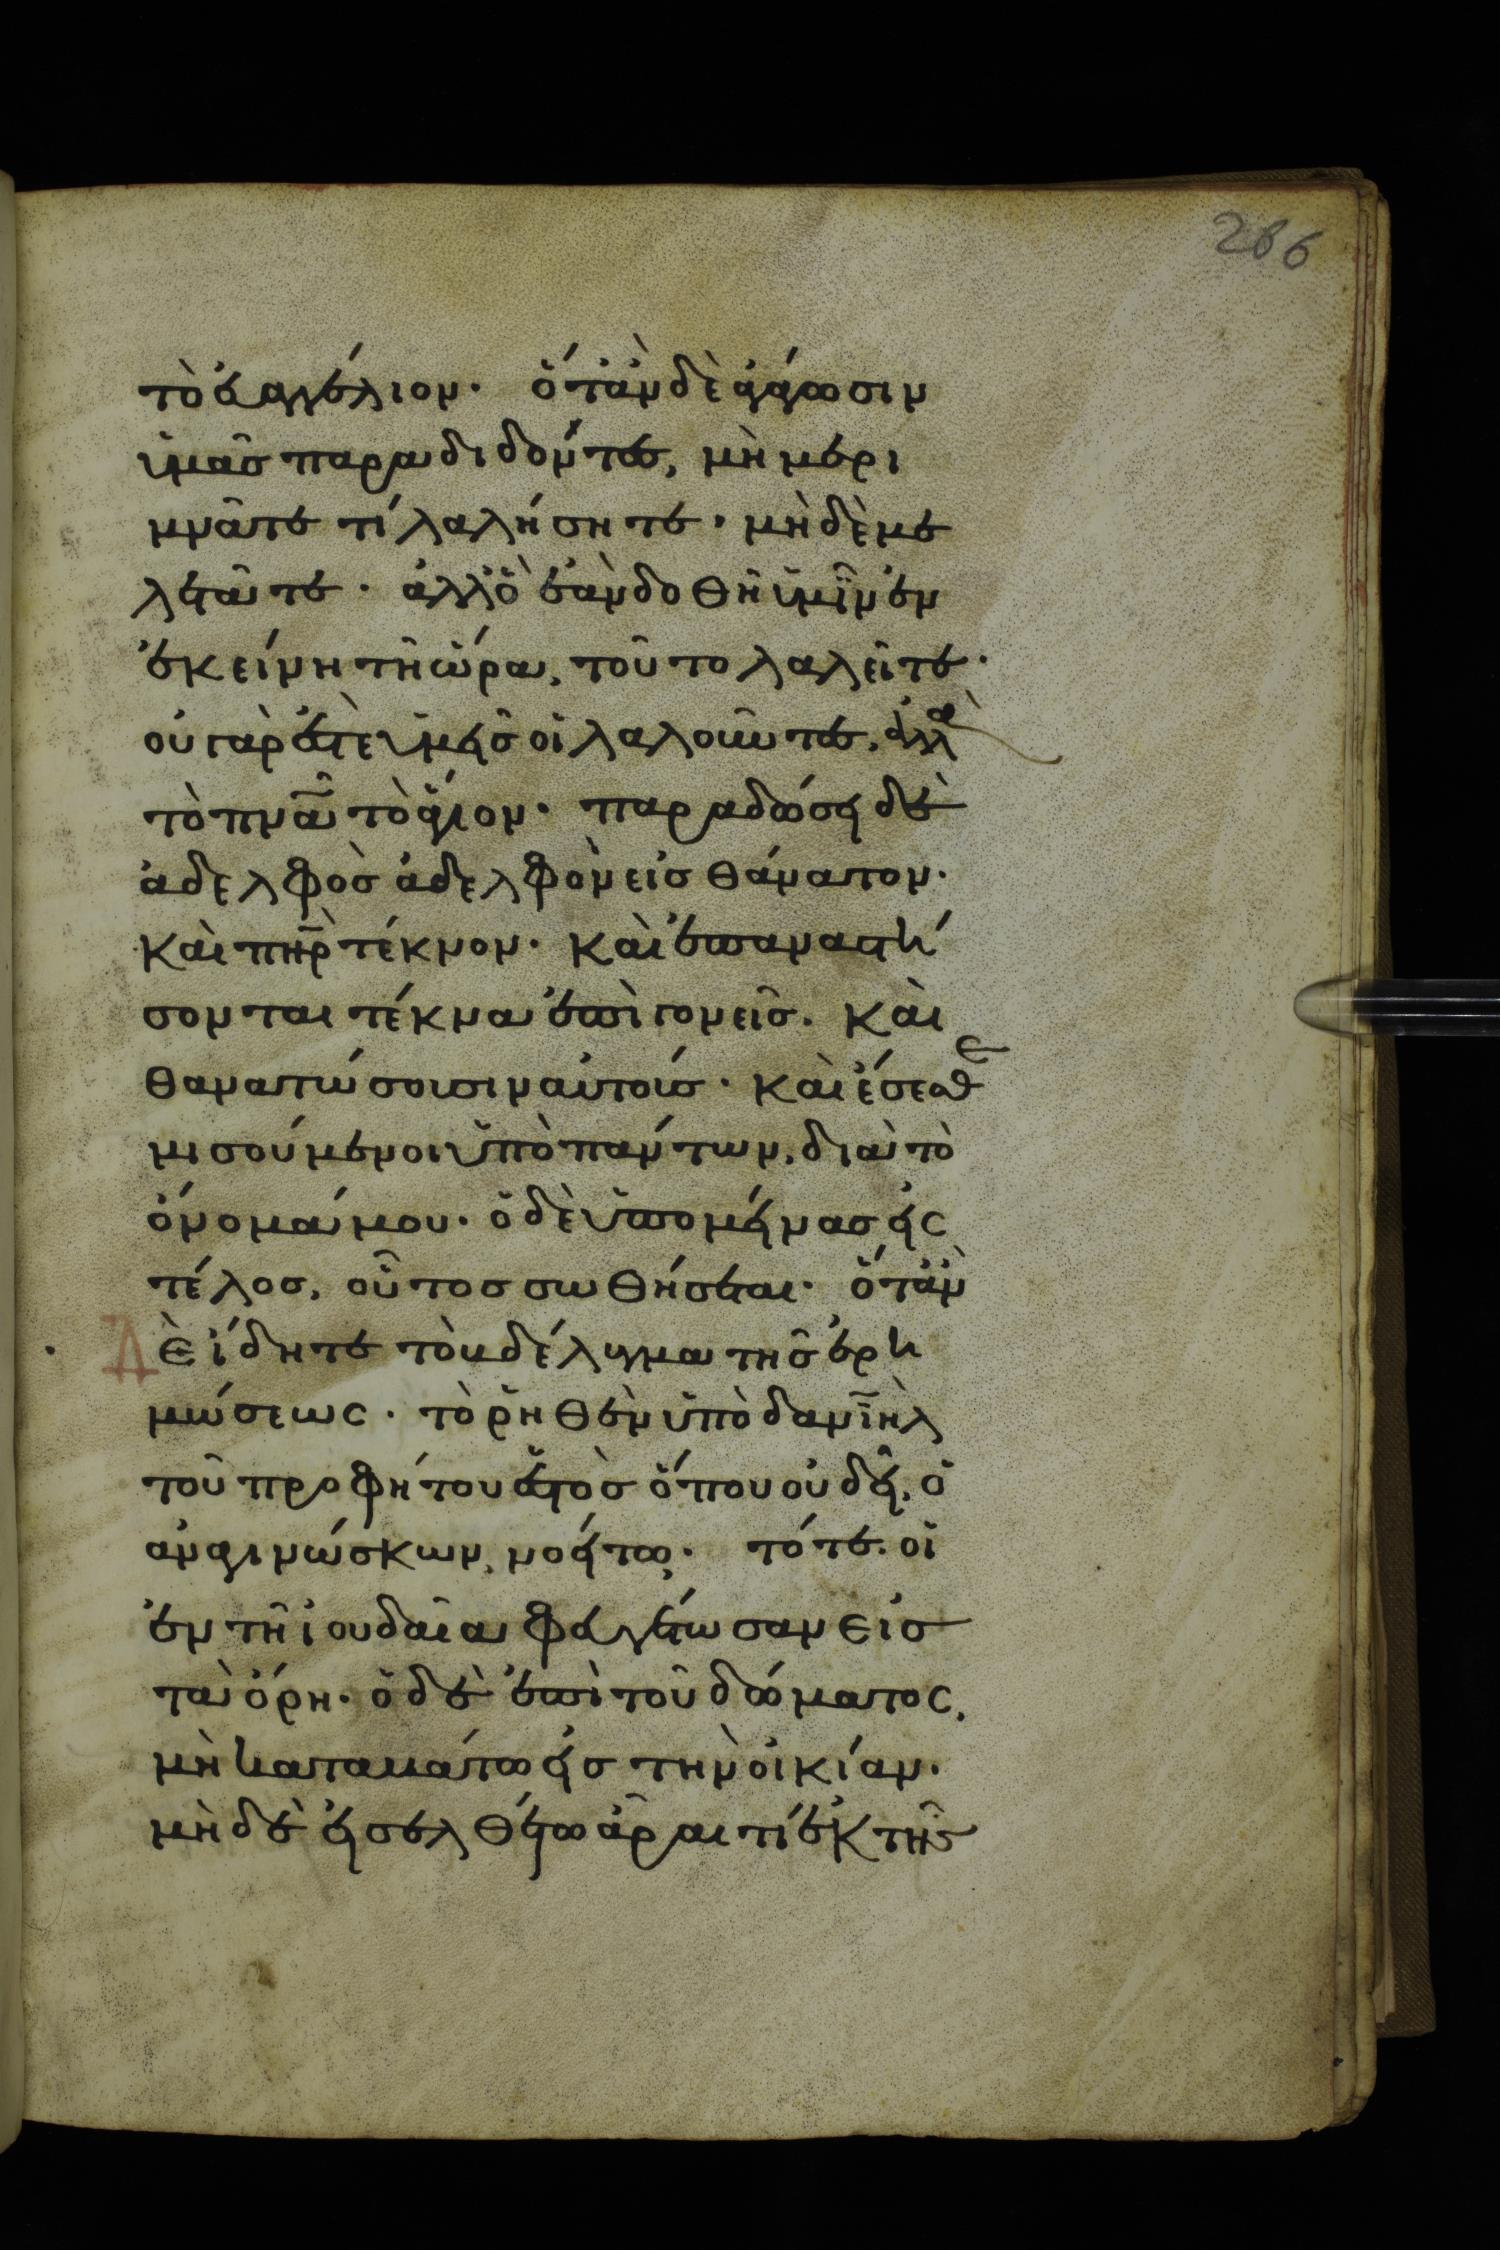 266
τὸ ἐυαγγέλιον. ὅτὰν δὲ ἀγάγωσιν
ὑμᾶς παραδιδόντες, μὴ μερι
μνᾶτε τί λαλήσητε. μὴδὲ με
λετᾶτε. ἀλλ' ὃ ἐὰν δοθῆ ὑμῖν ἐν
ἐκείνη τῆ ὥρα, τοῦτο λαλεῖτε.
οὐ γὰρ ἐστὲ ὑμεῖς οἱ λαλοῦντες, ἀλλὰ
τὸ πνᾶ τὸ ἅγιον. παραδώσει δὲ
ἀδελφὸς ἀδελφὸν εἰς θάνατον.
καὶ πηρ τέκνον. καὶ ἐπαναστή
σονται τέκνα ἐπὶ γονεῖς. καὶ
θανατώσουσιν αὐτούς. καὶ ἔσεσθε
μισούμενοι ὑπὸ πάντων, διὰ τὸ
ὄνομά μου. ὁ δὲ ὑπομείνας εἰς
τέλος, οὗτος σωθήσεται. ὅτὰν
Δὲ ἴδητε τὸ βδέλυγμα τῆς ἐρη
μώσεως. τὸ ῥηθὲν ὑπὸ δανιὴλ
τοῦ προφήτου ἑστὸς ὅπου οὐ δεῖ, ὁ
ἀναγινώσκων, νοείτω. τότε. οἱ
ἐν τῆ ἰουδαία φευγέτωσαν εἰς
τὰ ὄρη. ὁ δὲ ἐπὶ τοῦ δώματος,
μὴ καταβάτω εἰς τὴν οἰκίαν.
μὴδὲ εἰσελθέτω ἆραι τί ἐκ τῆς